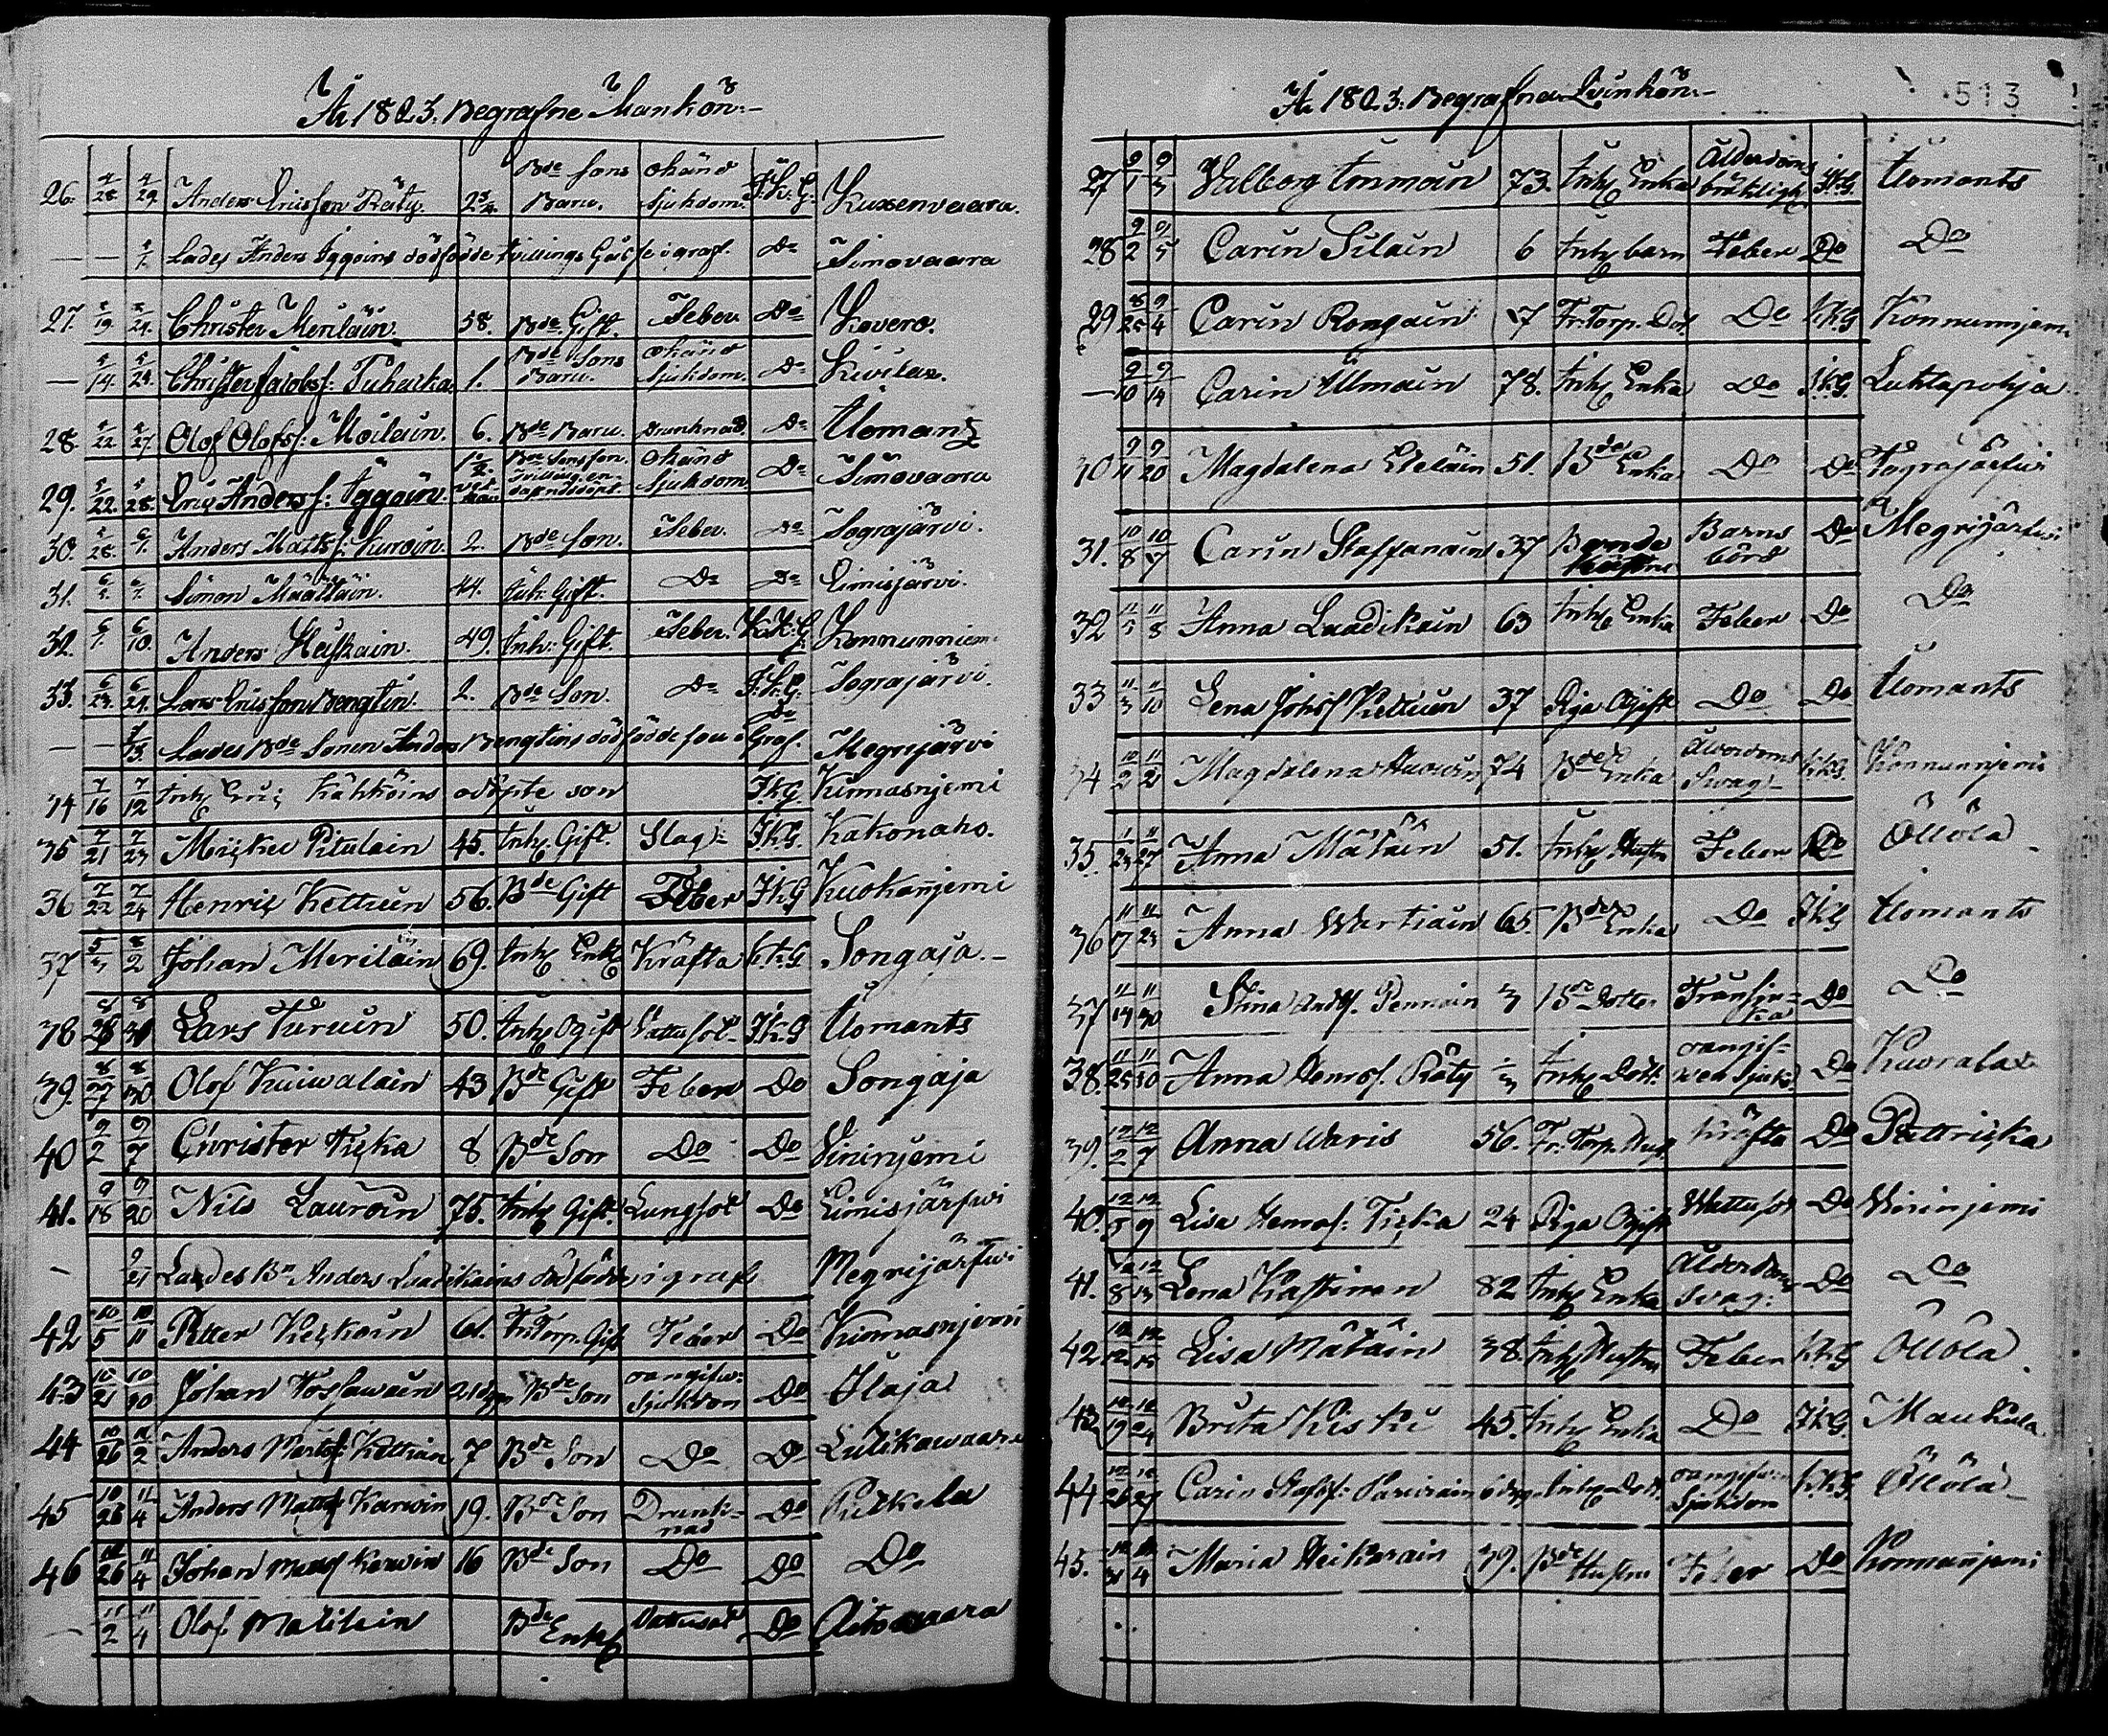 Åhr 1823. Begrafne Mankön.
26. 4/28 4/29 Anders Ericsson Räty. 2 3/4 Bde Sons Barn. okänd sjukdom. I.K.G. Kuxenvaara.
— — Lades Anders Iggoins dödfödde tvillings i graf. Do Simovaara
27. 19 24 Christer Meriläin. 58. Bde Gift. Feber. Do Kovero.
— 14. 24. Christer Jacobss: Tuhacka. 1. Bde Sons Barn. okänd sjukdom. Do Kivilax.
28. 22 27 Olof Olofss: Moilain. 6. Bde Barn. drunknad. Do Ilomants
29. 22. 28. Eric Anderss: Iggoin. Bde sonsson. okänd sjukdom. Do Simovaara
30. 28. Anders Mattss: Kuroin. 2. Bde son. Feber. Do Sograjärvi.
31. Simon Määttäin. 44. Inh. Gift. Do Do Limisjärvi.
32. 6/7. 6/10. Anders Häyhäin. 49. Inh: Gift. Feber. K.K.G. Konnunniemi
33. 6/23. 6/24. Lars Ericsson Bengtin. 2. Bde Son. Do I.K.G. Sograjärvi.
— — Lades Bde Sonen Anders Bengtins dödfödde son i Graf. Do Megrijärvi
34 7/16 7/12 Inh Eric Kähköins odöpte son I.K.G. Kinnasnjemi
35 7/21 7/23 Mickel Pitulain 45. Inh Gift. Slag I.K.G. Kakonaho.
36 7/22 7/24 Henric Kettuin 56. Bde Gift Feber I.K.G Kuokanjemi
37 8/2 Johan Meriläin 69. Inh Enk Kräfta K.K.G Songaja.
38 8/28 8/31 Lars Turuin 50. Inh Ogift Vattusot I.K.G Ilomants
39. 8/27 8/30 Olof Kuiwalain 43 Bde Gift Feber Do Songaja
40 9/2 9/7 Christer Ticka 8 Bde Son Do Do Vininjemi
41. 9/18 9/20 Nils Lauroin 75. Inh Gift. Lungsot Do Limisjärfwi
— 9/21 Lades Bn Anders Laadikains dödfödde i graf Megrijärfwi
42 10/5 10/11 Petter Kickoin 61. Fr Torp. Gift Feber Do Kinnasnjemi
43 10/21 10/30 Johan Wossawain Bde Son oangifwen Sjukdom Do Ilaja
44 10/26 11/2 Anders Martss: Kettuin 7 Bde Son Do Do Lulikawaara
45 10/26 11/4 Anders Mattss Karwin 19. Bde Son Drunknad Do Putkela
46 10/26 11/4 Johan Mattss Karwin 16 Bde Son Do Do Do
— 11/2 11/4 Olof Malilain Bde Enkl Vattusot Do Aitowaara
Åhr 1823. Begrafna Qvinkön.
513
27 9/1 9/3 Valborg Immoin 73. Inh Enka Ålderdoms bräcklighet I.K.G. Ilomants
28 9/2 9/5 Carin Silain 6 Inh barn Feber Do Do
29 8/25 9/4 Carin Rongain 7 Fr: Torp. Dot. Do K.K.G Konnunnjemi
— 9/10 9/14 Carin Ullmain 78. Inh Enka Do I.K.G Luhtapohja
30 9/11 9/20 Magdalena Eteläin 51. Bde Enka Do Do Sograjärfwi
31. 10/8 10/7 Carin Staffanain 37 Bonde hustru Barnsbörd Do Megrijärfwi
32 11/5 11/8 Anna Laadikain 63 Inh Enka Feber Do Do
33 11/3 11/10 Lena Johss Kettuin 37 Piga Ogift Do Do Ilomants
34 10/2 11/2 Magdalena 74 Bde Enka Ålderdoms Svag K.K.G. Konnunnjemi
35. 11/23 11/27 Anna Mätäin 51. Inh Hustru Feber Do Öllölä
36 11/17 11/23 Anna Wartiain 65. Bde Enka Do I.K.G Ilomants
37 11/14 11/30 Stina Andss. Pennain 3 Bde Dotter Do Do
38. 11/25 11/30 Anna Henrss. Räty Inh Dott. oangifwen sjukd. Do Kuoralax
39. 12/2 12/7 Anna Waris 56. Fr: Torp. Hust Kräfta Do Pattricka
40. 12/5 12/9 Lisa Henrss: Ticka 24 Piga Ogift Wattusot Do Wininjemi
41. 12/8 12/13 Lena Kastinen 82 Inh Enka Ålderdoms Svag: Do Do
42 12/12 12/15 Lisa Mätäin 38. Inh Hustru Feber K.K.G Öllölä
43 12/19 12/24 Brita Kiski 45. Inh Enka Do I.K.G. Maukula
44 12/26 12/27 Carin Staffss: 6 dgr Inh Dott. oangifwen Sjukdom K.K.G. Öllölä
45. Maria Heikurain 39. Bde Hustru Feber Do Konnunnjemi